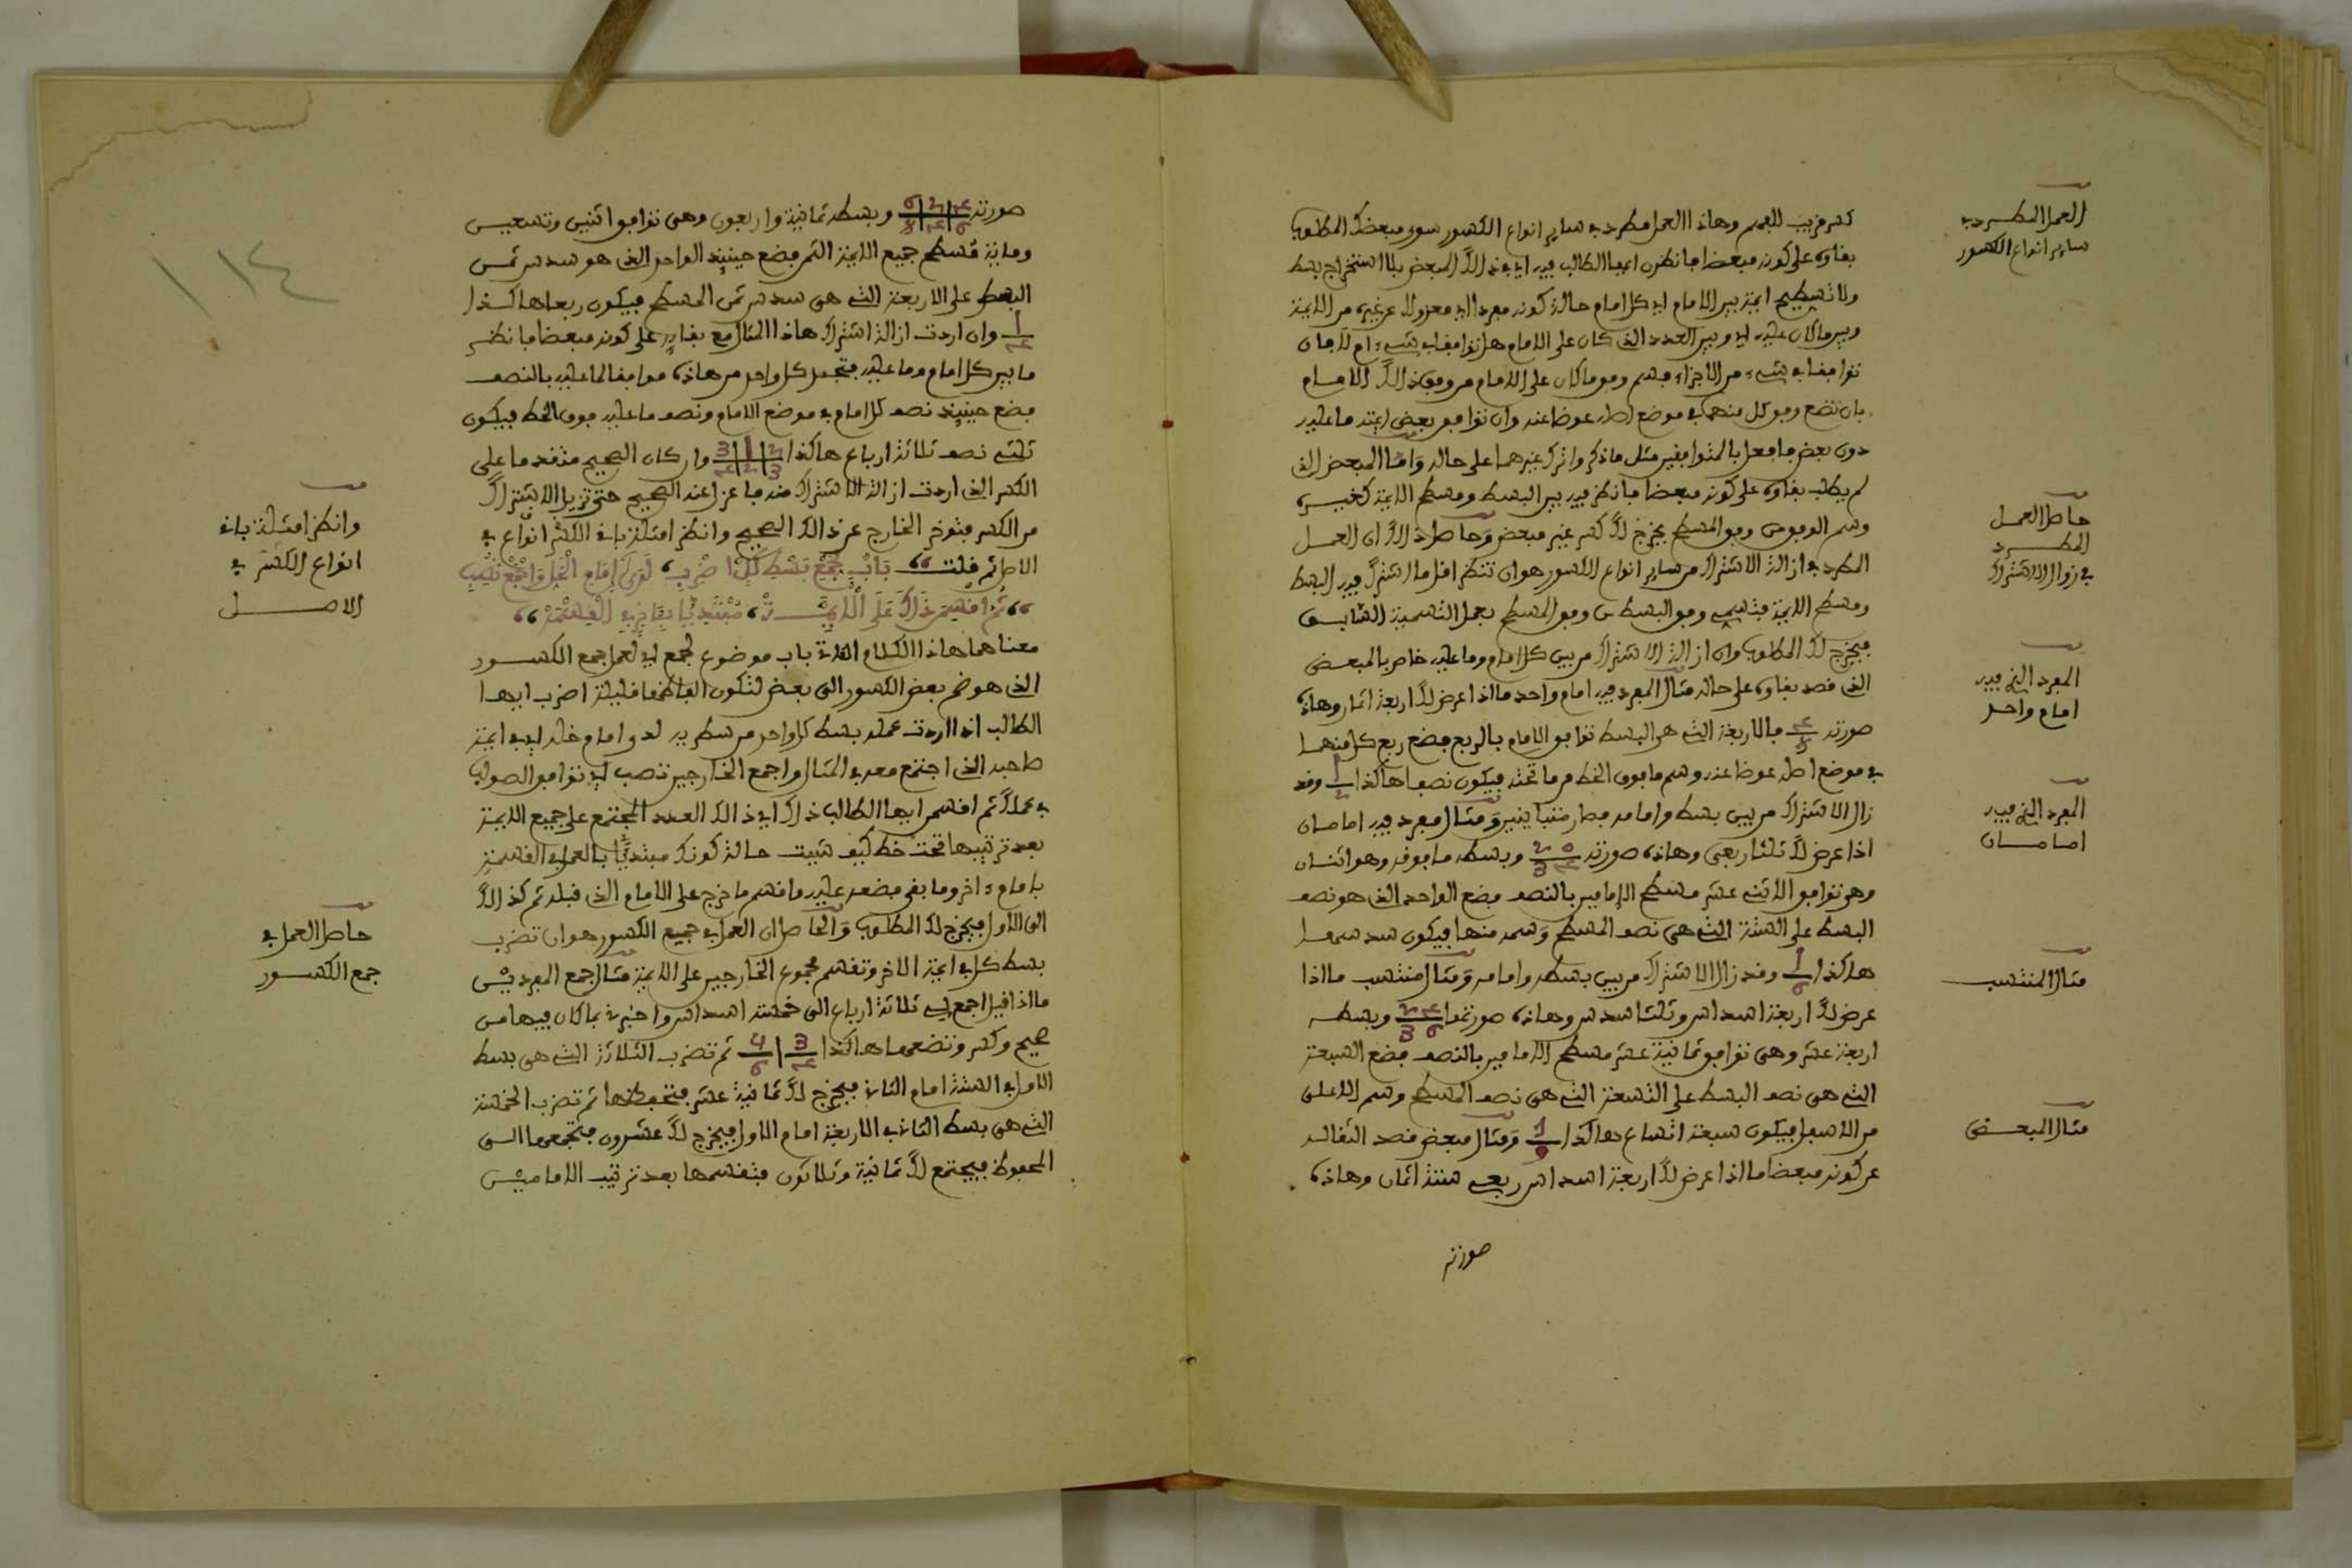 العمل المطرد في
ساير انواع الكسور
كسر قريب للفهم وهاذا العمل مطرد في ساير انواع الكسور سوى مبعضك المطلوب
بقاوه على كونه مبعضا فانظرن ايها الطالب فيه اي في ذالك المبعض بلا استخراج بسط
ولا تسطيح ايمة بين الامام اي كل امام حالة كونه مفردا اي معزولا عن غيره من الايمة
وبين ما كان عليه اي وبين العدد الذي كان على الامام هل توافقا في شيء ام لا فان
توافقا في شيء من الاجزاء فسم وفق ما كان على الامام من وفق ذالك الامام
بان تضع وفق كل منهما في موضع اصله عوضا عنه وان توافق بعض ايمته ما عليه
دون بعض فافعل بالمتوافقين مثل ما ذكر واترك غيرهما على حاله واما المبعض الذي
لم يطلب بقاوه على كونه مبعضا فانظر فيه بين البسط ومسطح الايمة كغيره
وسم الوفق من وفق المسطح يخرج لك كسر غير مبعض وحاصل ذالك ان العمل
حاصل العمل
المطرد
في زوال الاشتراك
المطرد في ازالة الاشتراك من ساير انواع الكسور هو ان تنظر اقل ما اشترك فيه البسط
ومسطح الايمة فتسمي وفق البسط من وفق المسطح بعمل التسمية السابق
فيخرج لك المطلوب وان ازالة الاشتراك من بين كل امام وما عليه خاص بالمبعض
الذي قصد بقاوه على حاله مثال المفرد فيه امام واحد ما اذا عرض لك اربعة اثمان وهاذه
المفرد الذي فيه
امام واحد
صورته ٤/٨ فالاربعة التي هي البسط توافق الامام بالربع فضع ربع كل منهما
في موضع اصله عوضا عنه وسم ما فوق الخط من ما تحته فيكون نصفا هاكذا ١/٢ وقد
زال الاشتراك من بين بسطه وامامه فصار متباينين ومثال مفرد فيه امامان
المفرد الذي فيه
امامان
اذا عرض لك ثلثا ربعي وهاذه صورته وبسطه ما فوقه وهو اثنان
وهو توافق الاثني عشر مسطح الإمامين بالنصف فضع الواحد الذي هو نصف
البسط على الستة التي هي نصف المسطح وسمه منها فيكون سدسها
هاكذا ١/٦ وقد زال الاشتراك من بين بسطه وامامه ومثال منتسب ما اذا
مثال المنتسب
عرض لك اربعة اسداس وثلثا سدس وهاذه صورتها وبسطه
اربعة عشر وهي توافق ثمانية عشر مسطح الامامين بالنصف فضع السبعة
التي هي نصف البسط على التسعة التي هي نصف المسطح وسم الاعلى
من الاسفل فيكون سبعة اتساع هاكذا ومثال مبعض قصد انتقاله
مثال المبعض
عن كونه مبعضا ما اذا عرض لك اربعة اسداس ربعي ستة اثمان وهاذه
صورته
١١٤
صورته ٤/٦ ٢/٤ ٦/٨ وبسطه ثمانية واربعون وهي توافق اثنين وتسعين
وماية مسطح جميع الايمة الثمن فضع حينيذ الواحد الذي هو سدس ثمن
البسط على الاربعة التي هي سدس ثمن المسطح فيكون ربعا هاكذا
١/٤ وان اردت ازالة اشتراك هاذا المثال مع بقايه على كونه مبعضا فانظر
ما بين كل امام وما عليه فتجد كل واحد من هاذه موافقا لما عليه بالنصف
فضع حينيذ نصف كل امام في موضع الامام ونصف ما عليه فوق الخط فيكون
ثلثي نصف ثلاثة ارباع هاكذا ٢/٣ ١/٢ ٣/٤ وان كان الصحيح متقدما على
الكسر الذي اردت ازالة الاشتراك منه فاعزل عنه الصحيح حتى تزيل الاشتراك
من الكسر فتوخر الخارج عن ذالك الصحيح وانظر امثلة باقي الكسر انواع في
وانظر امثلة باقي
انواع الكسر في
الاصل
الاصل ثم قلت باب جمع بسط كل اضرب لدى امام الخل واجمع تصب
ثم اقسمن ذاك على الايمة مبتديا بآخر في القسمة
معناهما هاذا الكلام الاتي باب موضوع لجمع اي لعمل جمع الكسور
الذي هو ضم بعض الكسور الى بعض لتكون الفاظها قليلة اضرب ايها
الطالب اذا اردت عمله بسط كل واحد من سطريه لدى امام خله اي في ايمة
صاحبه الذي اجتمع معه في المثال واجمع الخارجين تصب اي توافق الصواب
في عملك ثم اقسمن ايها الطالب ذاك اي ذالك العدد المجتمع على جميع الايمة
بعد ترتيبها تحت خط كيف شيت حالة كونك مبتديا بالعمل في القسمة
بامام ءاخر وما بقي فضعه عليه واقسم ما خرج على الامام الذي قبله ثم كذالك
الى الاول فيخرج لك المطلوب والحاصل ان العمل في جميع الكسور هو ان تضرب
حاصل العمل في
جمع الكسور
بسط كل في ايمة الاخر وتقسم مجموع الخارجين على الايمة مثال جمع المفردين
ما اذا قيل اجمع لي ثلاثة ارباع الى خمسة اسداس واخبرني بما كان فيها من
صحيح وكسر وتضعهما هاكذا ٣/٤ ٥/٦ ثم تضرب الثلاثة التي هي بسط
الاول في الستة امام الثاني فيخرج لك ثمانية عشر فتحفظها ثم تضرب الخمسة
التي هي بسط الثاني في الاربعة امام الاول فيخرج لك عشرون فتجمعها الى
المحفوظ فيجتمع لك ثمانية وثلاثون فتقسمها بعد ترتيب الامامين